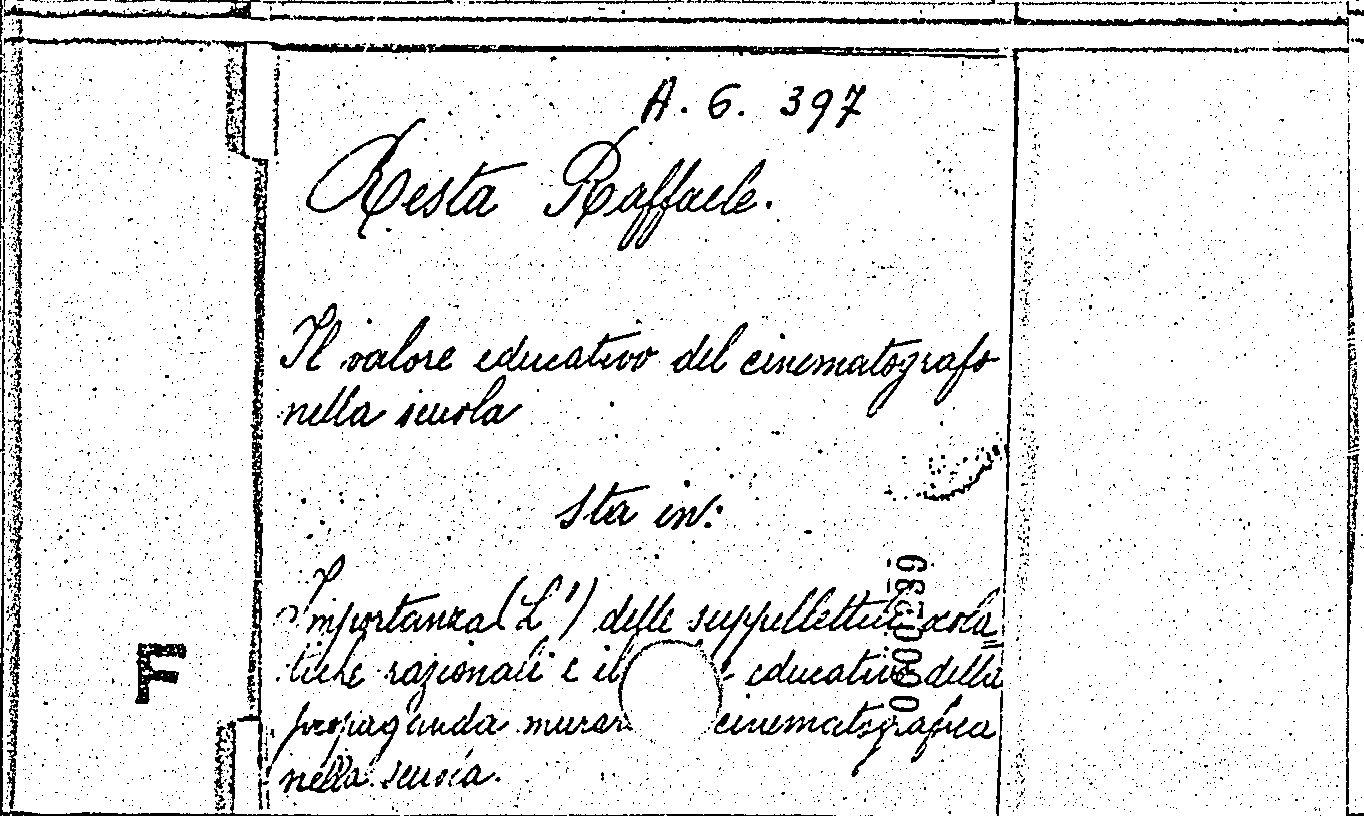 A. 6. 397
Resta Raffaele.
Il valore educativo del cinematografo
nella scuola
Sta in:
Importanza (L') delle suppellettili scola=
tiche razionali e il educativo della
propaganda murar cinematografica
nella scuola.
F